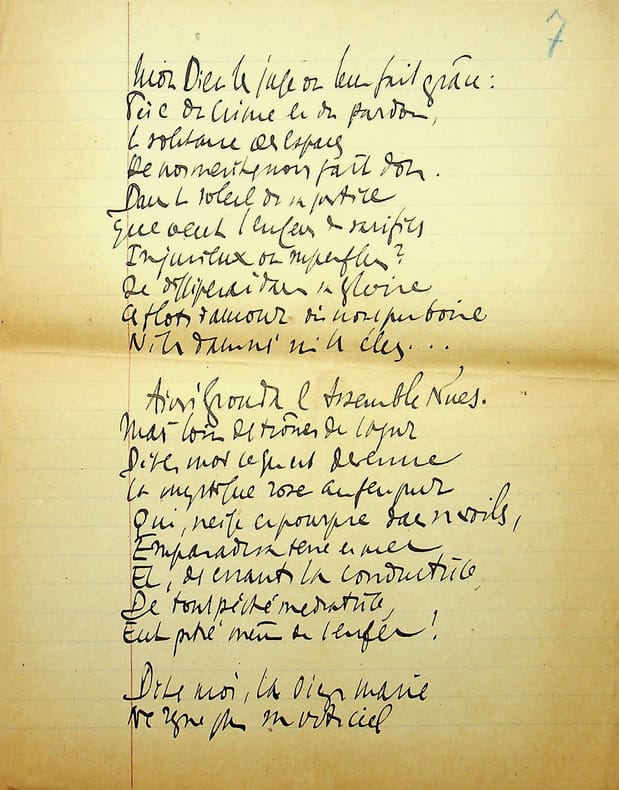 7
Mon Dieu le juge ou leur fait grâce :
Père du crime et du pardon,
Le solitaire des espaces
De nos mérites nous fait don.
Dans le soleil de sa justice
Que veut l'enfer de sacrifices
Injurieux ou superflu ?
Se dissiperai dans sa gloire
Ces flots d'amour où n'ont pu boire
Ni les damnés ni les élus...
Ainsi gronda l'Assemble Nues.
Mais loin des trônes de l'azur
Dites moi ce qu'est devenue
La mystique rose au feu pur
Qui, neige et pourpre dans ses voiles,
Emparadisa terre et mer
Et, des errants la conductrice,
De tout péché médiatrice,
Eut pitié même de l'enfer !
Dites moi, la Vierge Marie
Ne règne plus sur votre ciel